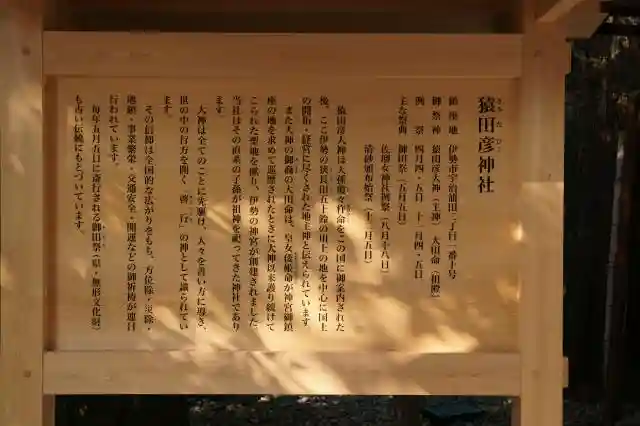 猿田彦神社
さるたひこ
鎮座地　伊勢市宇治浦田二丁目一番十号
御祭神　猿田彦大神（主神）大田命（祖神）
例　祭　四月四・五日　十一月四・五日
主な祭典　御田祭（五月五日）
佐瑠女神社例祭（八月十八日）
清砂頒布始祭（十二月五日）
猿田彦大神は天孫瓊々杵命をこの国に御案内された
後、ここ伊勢の狭長田五十鈴の川上の地を中心に国土
の開拓・経営に尽くされた地主神と伝えられています
また大神の御裔の大田命は、皇女倭姫命が神宮御鎮
座の地を求めて巡歴されたときに大神以来護り続けて
こられた聖地を献り、伊勢の神宮が創建されました
当社はその直系の子孫が祖神を祀ってきた神社であり
ます
大神は全てのことに先駆け、人々を善い方に導き、
世の中の行方を開く「啓行」の神として識られてい
ます。
その信仰は全国的な広がりをもち、方位除・災除・
地鎮・事業繁栄・交通安全・開運などの御祈祷が連日
行われています。
毎年五月五日に斎行される御田祭（県・無形文化財）
も古い伝統にもとづいています。